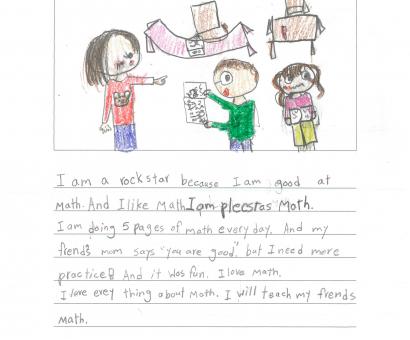 I am a rockstar because I am good at
math. And I like Math. I am plecstas Moth.
I am doing 5 pages of math every day. And my
frend's mom says "you are good". but I need more
practice! And it was fun. I love math.
I love evey thing about Moth. I will teach my frends
math.